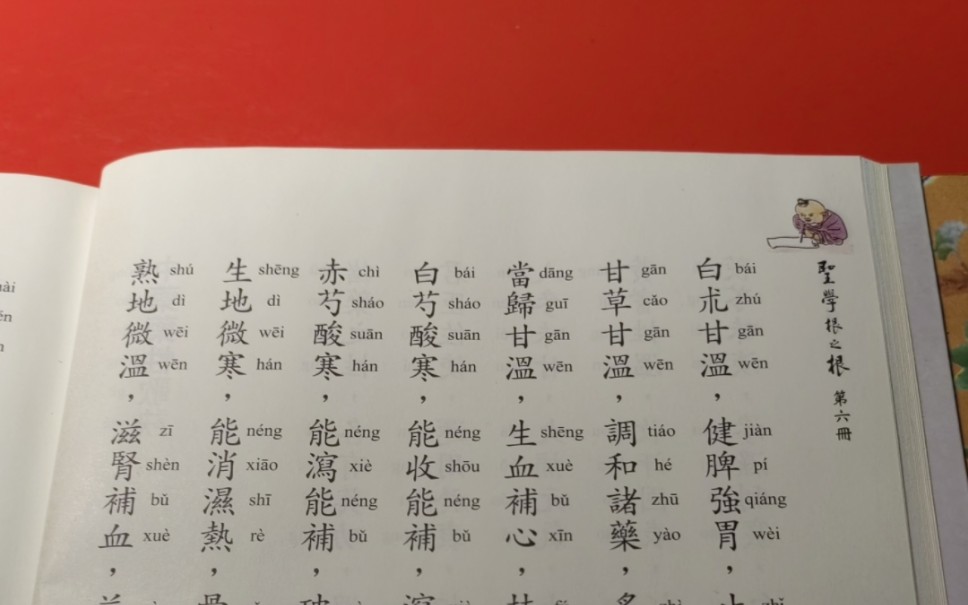 聖學根之根 第六冊
白朮甘溫，健脾強胃，
bái zhú gān wēn jiàn pí qiáng wèi
甘草甘溫，調和諸藥，
gān cǎo gān wēn tiáo hé zhū yào
當歸甘溫，生血補心，
dāng guī gān wēn shēng xuè bǔ xīn
白芍酸寒，能收能補，
bái sháo suān hán néng shōu néng bǔ
赤芍酸寒，能瀉能補，
chì sháo suān hán néng xiè néng bǔ
生地微寒，能消濕熱，
shēng dì wēi hán néng xiāo shī rè
熟地微溫，滋腎補血，
shú dì wēi wēn zī shèn bǔ xuè